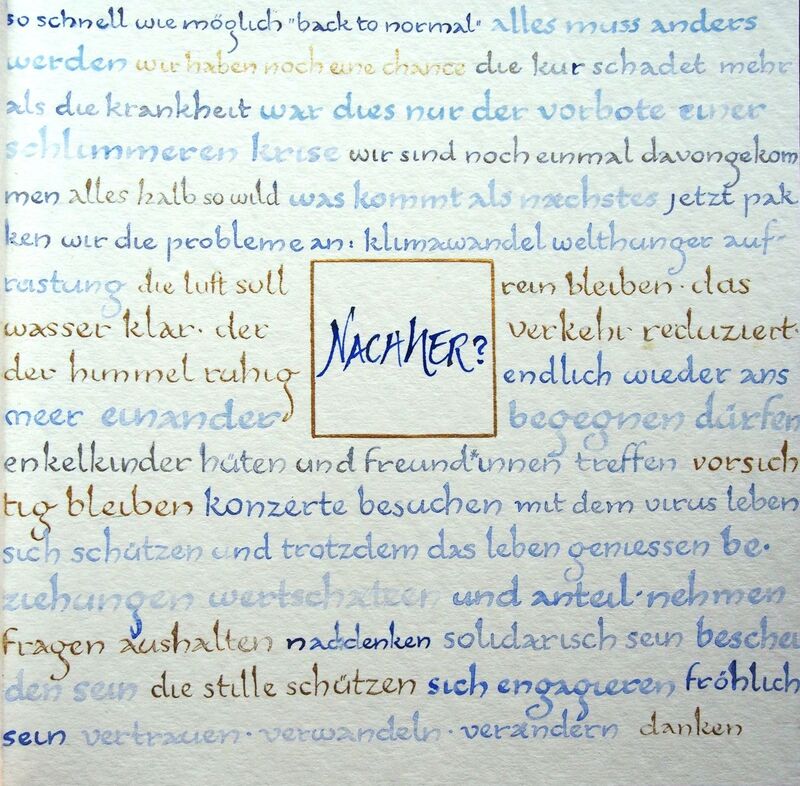 so schnell wie möglich "back to normal" alles muss anders
werden wir haben noch eine chance die kur schadet mehr
als die krankheit war dies nur der vorbote einer
schlimmeren krise wir sind noch einmal davongekom
men alles halb so wild was kommt als nächstes jetzt pak
ken wir die probleme an: klimawandel welthunger auf-
rüstung die luft soll rein bleiben · das
wasser klar · der verkehr reduziert ·
der himmel ruhig endlich wieder ans
NACHHER?
meer einander begegnen dürfen
enkelkinder hüten und freund*innen treffen vorsich
tig bleiben konzerte besuchen mit dem virus leben
sich schützen und trotzdem das leben geniessen be-
ziehungen wertschätzen und anteil-nehmen
fragen aushalten nachdenken solidarisch sein beschei
den sein die stille schützen sich engagieren fröhlich
sein vertrauen · verwandeln · verändern danken